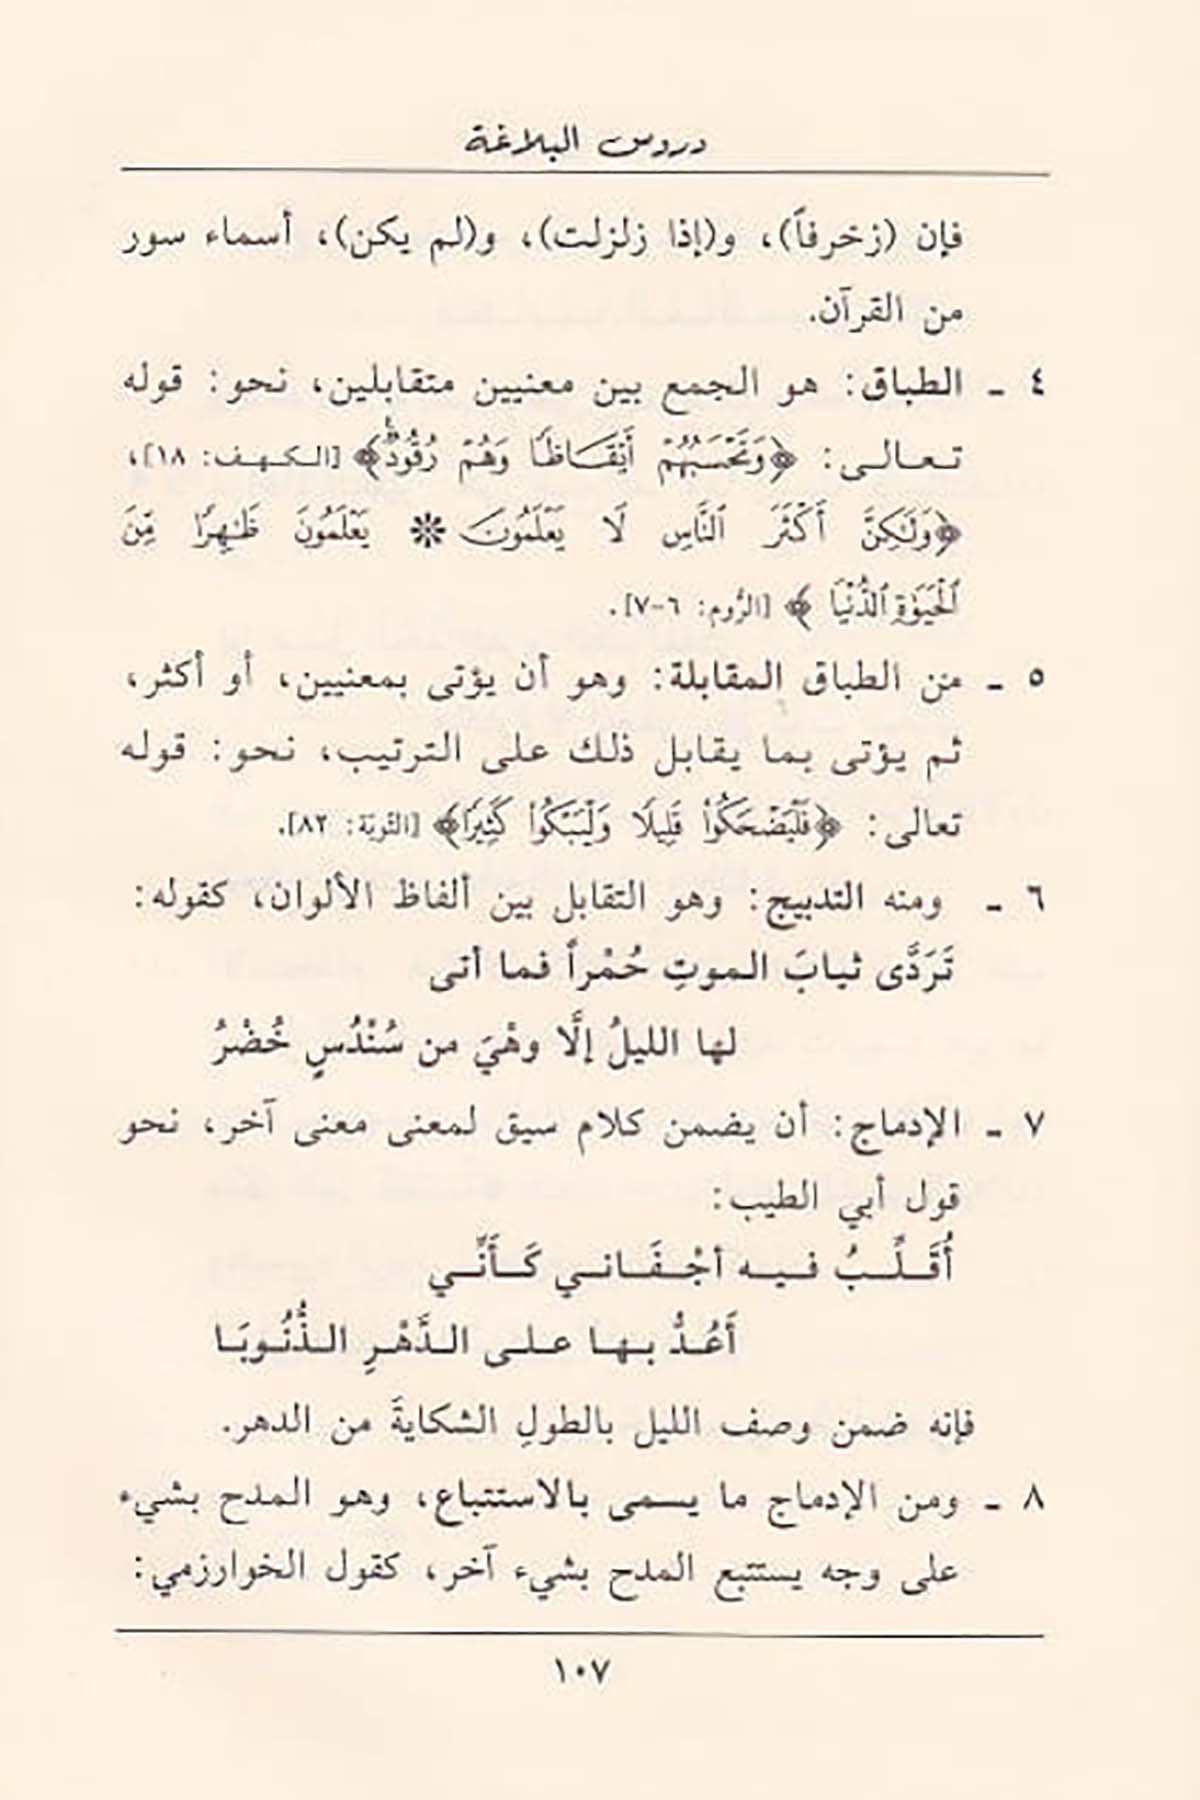 دروس البلاغة
فإن (زخرفاً)، و(إذا زلزلت)، و(لم يكن)، أسماء سور
من القرآن.
٤ ـ الطباق: هو الجمع بين معنيين متقابلين، نحو: قوله
تعالى: ﴿وَتَحْسَبُهُمْ أَيْقَاظًا وَهُمْ رُقُودٌ﴾ [الكهف: ١٨]،
﴿وَلَٰكِنَّ أَكْثَرَ ٱلنَّاسِ لَا يَعْلَمُونَ ❊ يَعْلَمُونَ ظَٰهِرًا مِّنَ
ٱلْحَيَوٰةِ ٱلدُّنْيَا﴾ [الرُّوم: ٦-٧].
٥ ـ من الطباق المقابلة: وهو أن يؤتى بمعنيين، أو أكثر،
ثم يؤتى بما يقابل ذلك على الترتيب، نحو: قوله
تعالى: ﴿فَلْيَضْحَكُوا۟ قَلِيلًا وَلْيَبْكُوا۟ كَثِيرًا﴾ [التّوبَة: ٨٢].
٦ ـ ومنه التدبيج: وهو التقابل بين ألفاظ الألوان، كقوله:
تَرَدَّى ثيابَ الموتِ حُمْراً فما أتى
لها الليلُ إلَّا وهْيَ من سُنْدُسٍ خُضْرُ
٧ ـ الإدماج: أن يضمن كلام سيق لمعنى معنى آخر، نحو
قول أبي الطيب:
أُقَلِّبُ فيه أجْفَاني كَأَنِّي
أَعُدُّ بها على الدَّهْرِ الذُّنُوبَا
فإنه ضمن وصف الليل بالطولِ الشكايةَ من الدهر.
٨ ـ ومن الإدماج ما يسمى بالاستتباع، وهو المدح بشيء
على وجه يستتبع المدح بشيء آخر، كقول الخوارزمي:
١٠٧